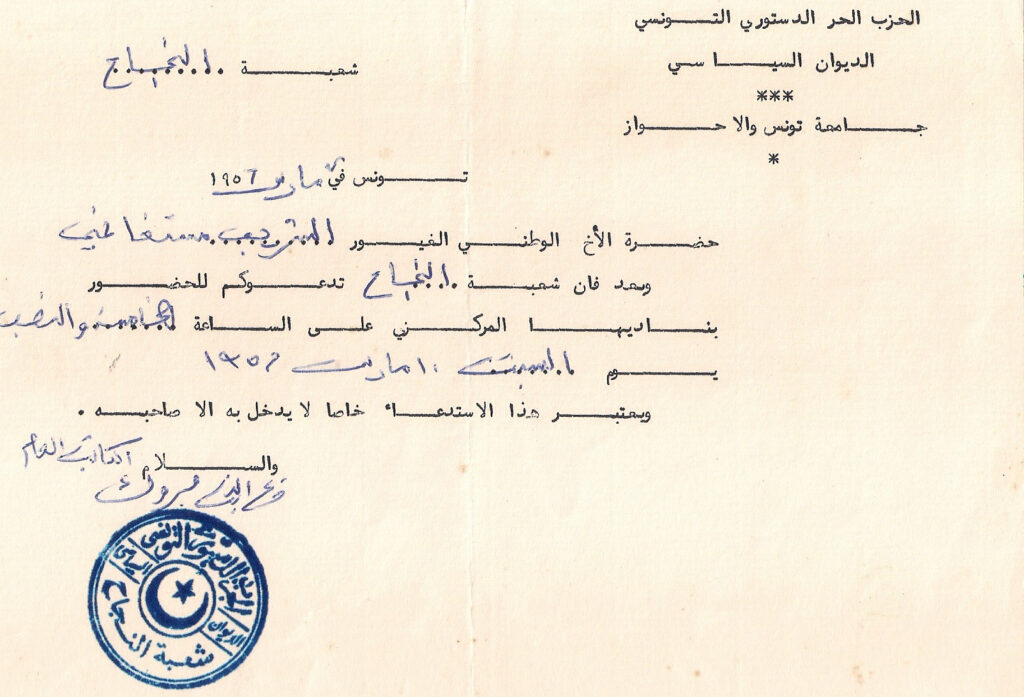 الحزب الحر الدستوري التونسي
الديوان السياسي
***
جامعة تونس والاحواز
*
شعبة النجاح
تونس في مارس ١٩٥٦
حضرة الأخ الوطني الغيور الشريف مستغانمي
وبعد فان شعبة النجاح تدعوكم للحضور
بناديها المركزي على الساعة الخامسة والنصف
يوم السبت ١٠ مارس ١٩٥٦
ويعتبر هذا الاستدعاء خاصا لا يدخل به الا صاحبه .
والسلام الكاتب العام
عز الدين مبروك
الحزب الحر الدستوري التونسي
الديوان السياسي
شعبة النجاح